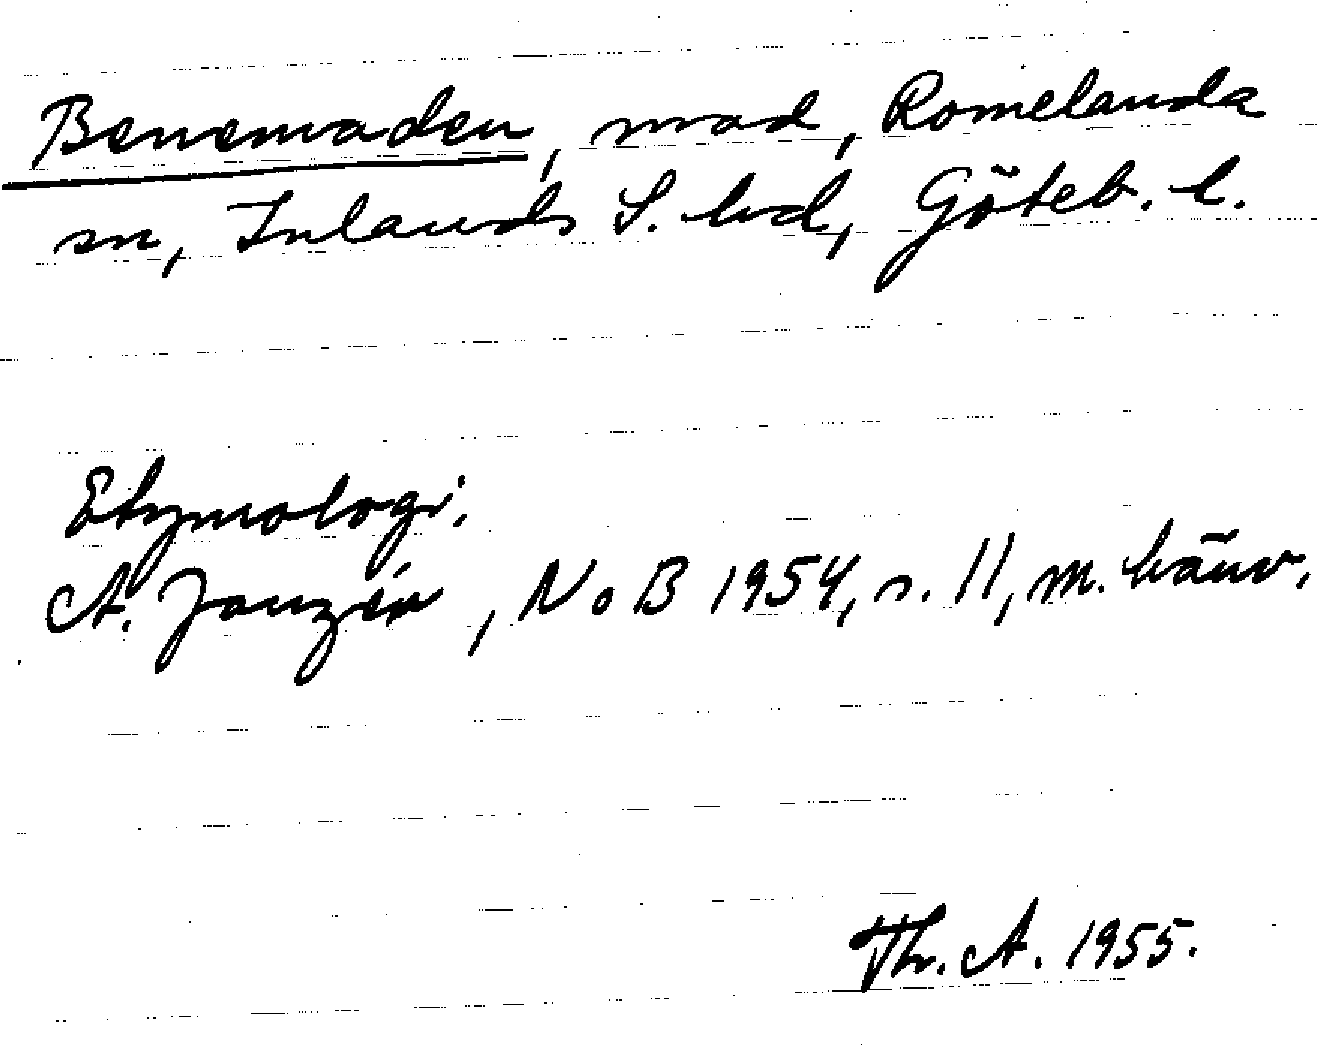 Benemaden, mad, Romelanda
sn, Inlands S. hd, Göteb. l.
Etymologi:
A. Janzén, NoB 1954, s. 11, m. hänv.
Th. A. 1955.